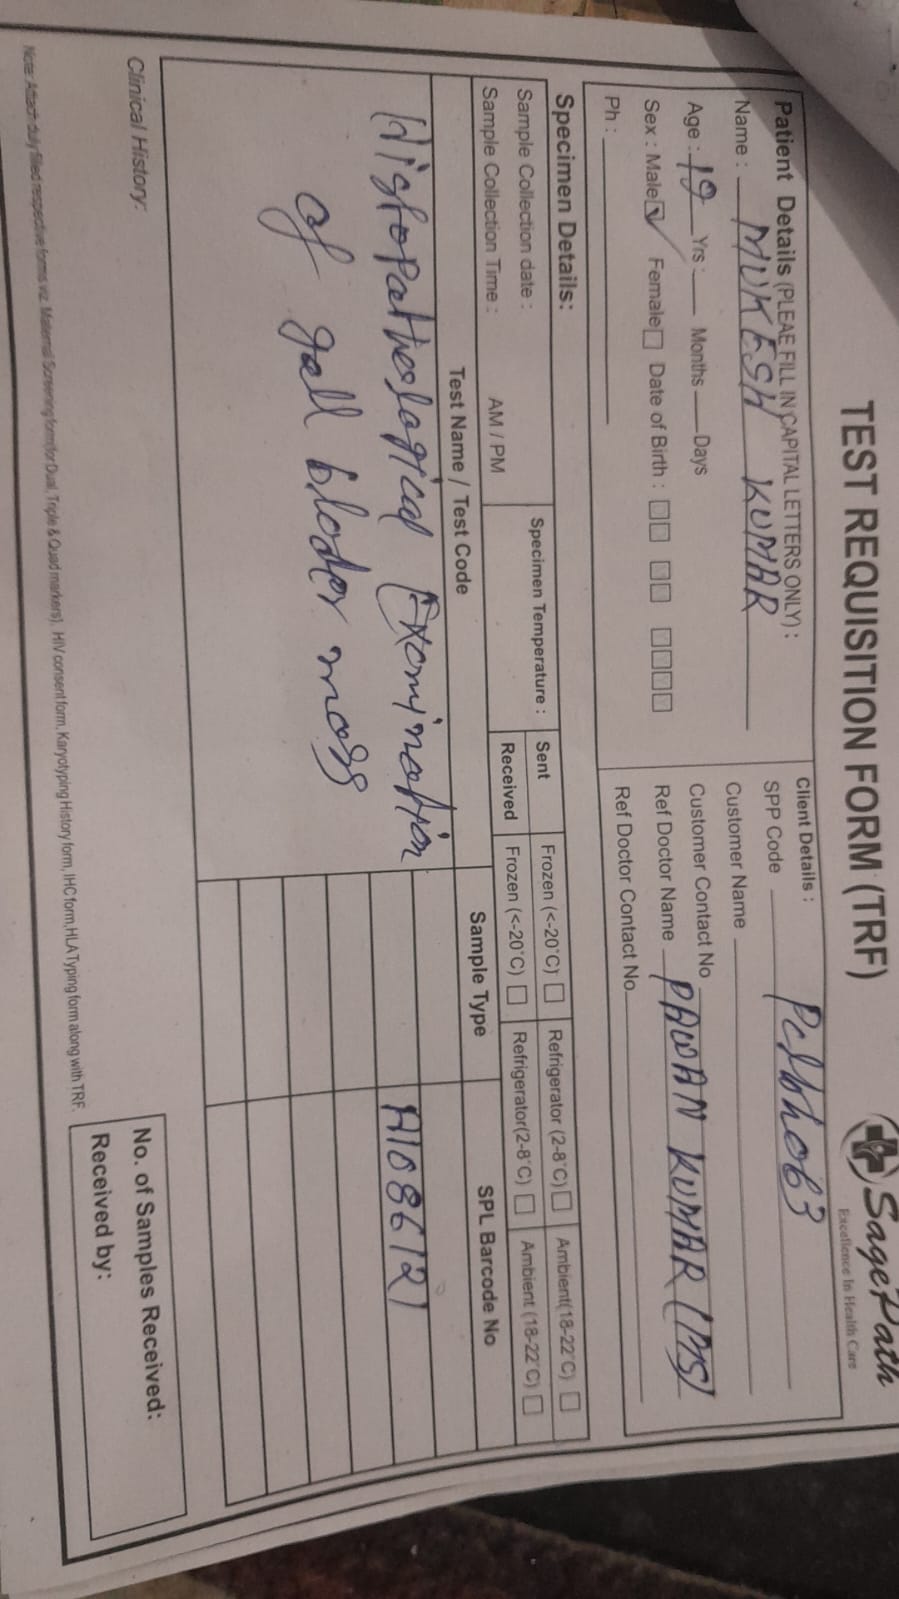 TEST REQUISITION FORM (TRF)
SagePath
Excellence In Health Care
Patient Details (PLEAE FILL IN CAPITAL LETTERS ONLY) :
Name : MUKESH KUMAR
Age : 19 Yrs : Months Days
Sex : Male Female Date of Birth :
Ph :
Client Details :
SPP Code
Customer Name
Customer Contact No
Ref Doctor Name PAWAN KUMAR
Ref Doctor Contact No
Specimen Details:
Sample Collection date :
Sample Collection Time : AM / PM
Specimen Temperature :
Sent Frozen (<-20°C) Refrigerator (2-8°C) Ambient(18-22°C)
Received Frozen (<-20°C) Refrigerator(2-8°C) Ambient (18-22°C)
Test Name / Test Code Sample Type SPL Barcode No
Histopathological Examination A1086121
of gall blader mass
Clinical History:
No. of Samples Received:
Received by:
Note: Attach duly filled respective forms viz. Maternal Screening form(for Dual, Triple & Quad markers), HIV consent form, Karyotyping History form, IHC form, HLA Typing form along with TRF.